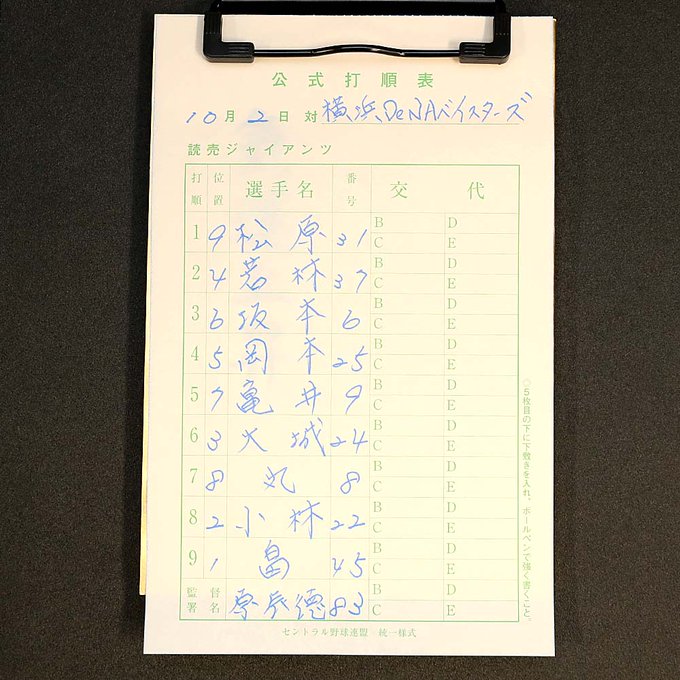 公式打順表
10月2日 対 横浜DeNAベイスターズ
読売ジャイアンツ
打順 位置 選手名 番号 交代
1 9 松原 31 B D C E
2 4 若林 37 B D C E
3 6 坂本 6 B D C E
4 5 岡本 25 B D C E
5 7 亀井 9 B D C E
6 3 大城 24 B D C E
7 8 丸 8 B D C E
8 2 小林 22 B D C E
9 1 畠 45 B D C E
監督署名 原辰徳 83 B D C E
○5枚目の下に下敷きを入れ、ボールペンで強く書くこと。
セントラル野球連盟 統一様式